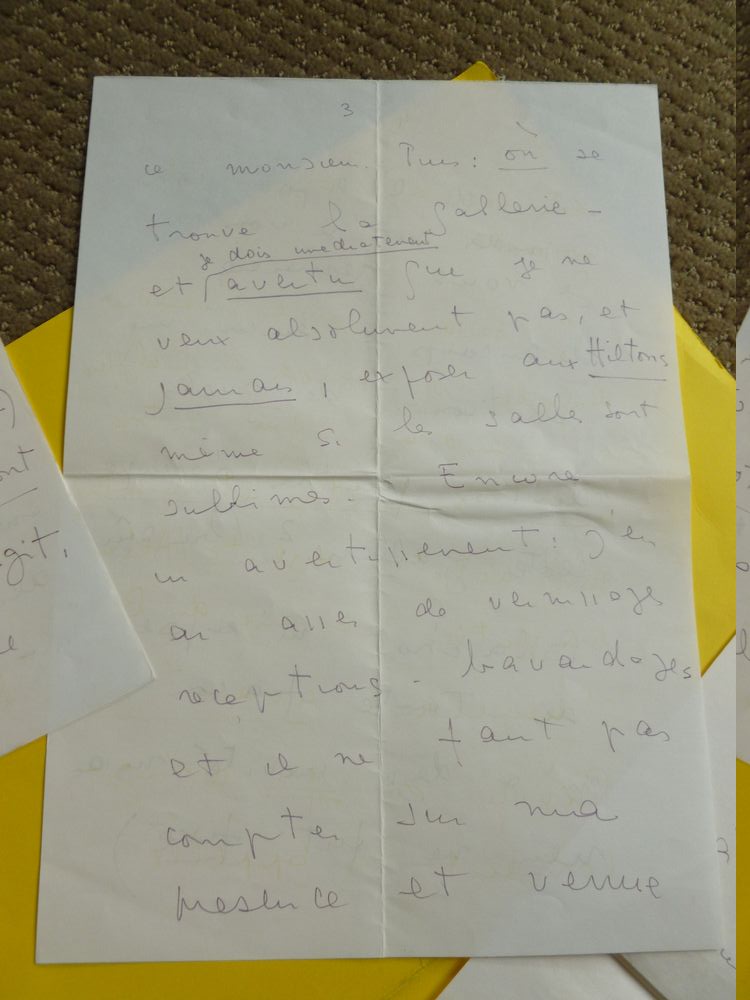 3
ce monsieur. Puis : où se
trouve la Gallerie –
je dois immediatement
et avertir que je ne
veux absolument pas, et
jamais, exposer aux Hiltons
même si les salles sont
sublimes. Encore
un avertissement : j'en
ai assez de vernissages
receptions - bavardages
et il ne faut pas
compter sur ma
presence et venue
ont
git.